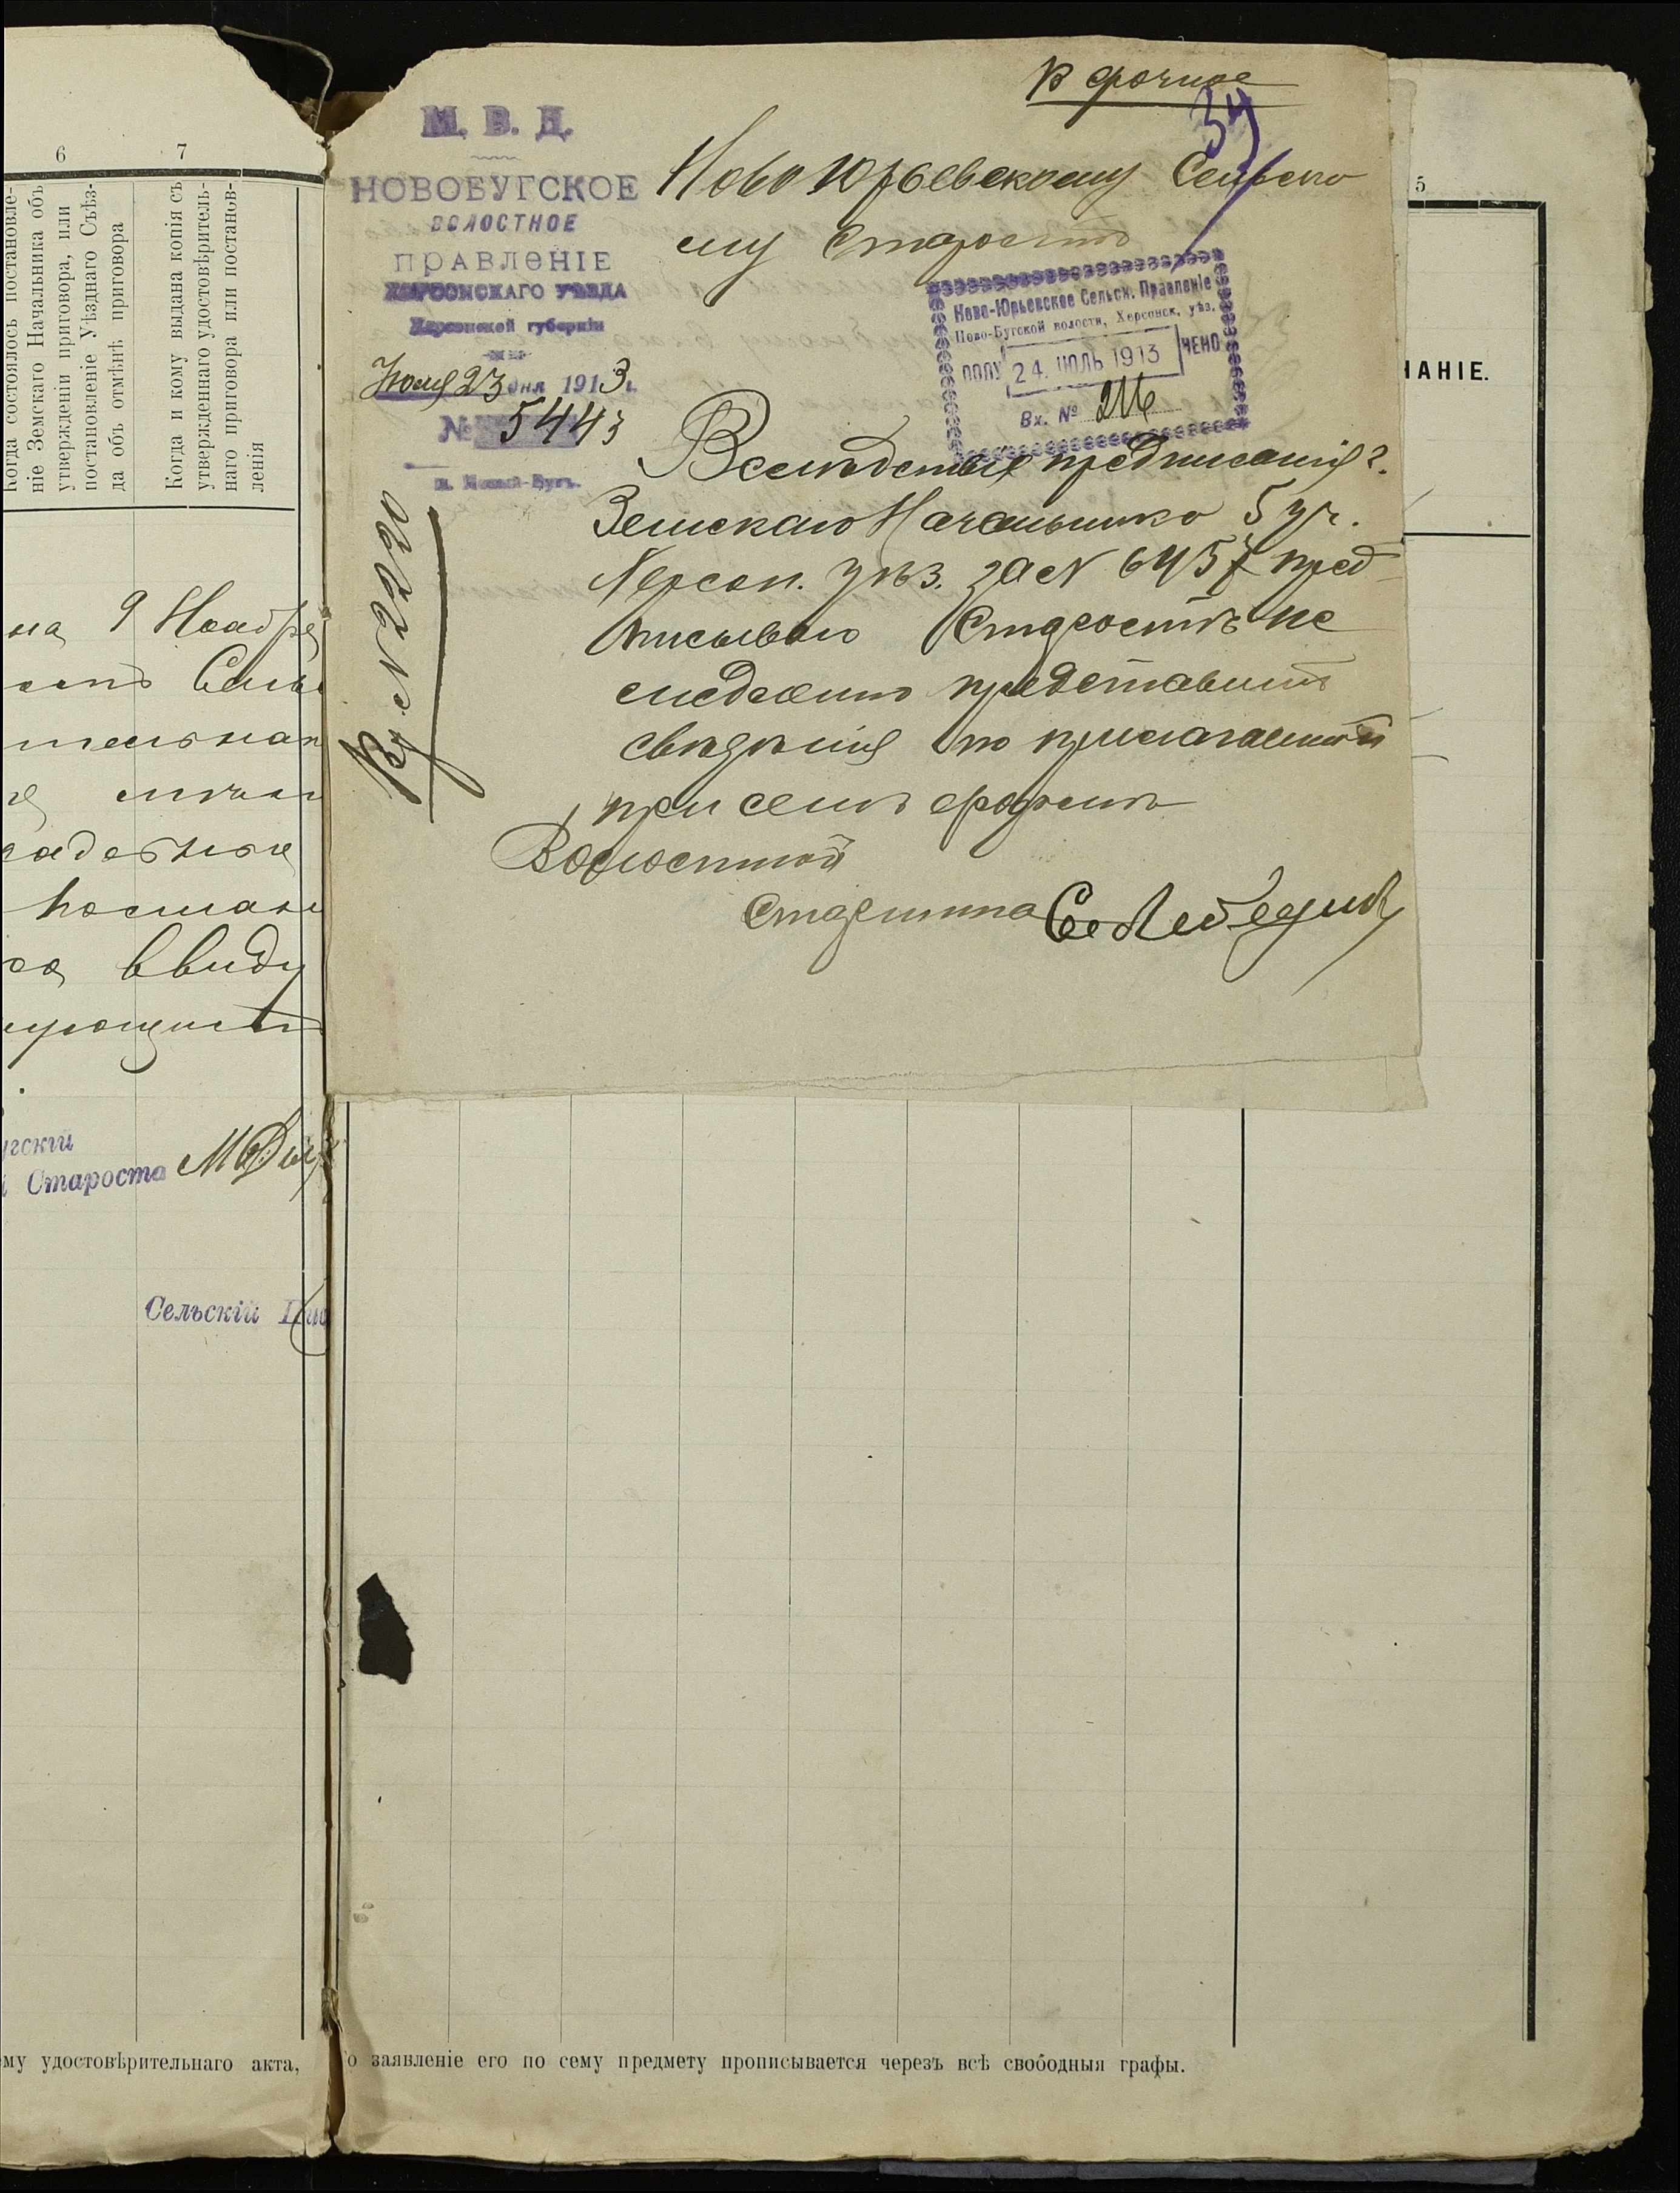 6
7
Когда состоялось постановле-
ніе Земскаго Начальника объ
утвержденіи приговора, или
постановленіе Уѣзднаго Съѣз-
да объ отмѣнѣ приговора
Когда и кому выдана копія съ
утвержденнаго удостовѣритель-
наго приговора или постанов-
ленія
на 9 Ноября
ввиду
угскій
Староста
Сельскій Пис
му удостовѣрительнаго акта,
Срочное
34
М. В. Д.
НОВОБУГСКОЕ
ВОЛОСТНОЕ
ПРАВЛЕНІЕ
ХЕРСОНСКАГО УѢЗДА
Херсонской губерніи
Іюля 23 дня 1913 г.
№ 5443
п. Новый-Бугъ.
Ново Юрьевскому Сельско
му Старостѣ
Ново-Юрьевское Сельск. Правленіе
Ново-Бугской волости, Херсонск. уѣз.
ПОЛУ 24. ІЮЛЬ 1913 ЧЕНО
Вх. № 216
Вслѣдствіе предписанія г.
Земскаго Начальника 5 уч.
Херсон. уѣз. за № 6457 пред
писываю Старостѣ не
медленно представить
свѣдѣнія по прилагаемой
при семъ формѣ
Волостной
Старшина С. Лебедин
№ 2220
5
ЧАНІЕ.
о заявленіе его по сему предмету прописывается черезъ всѣ свободныя графы.